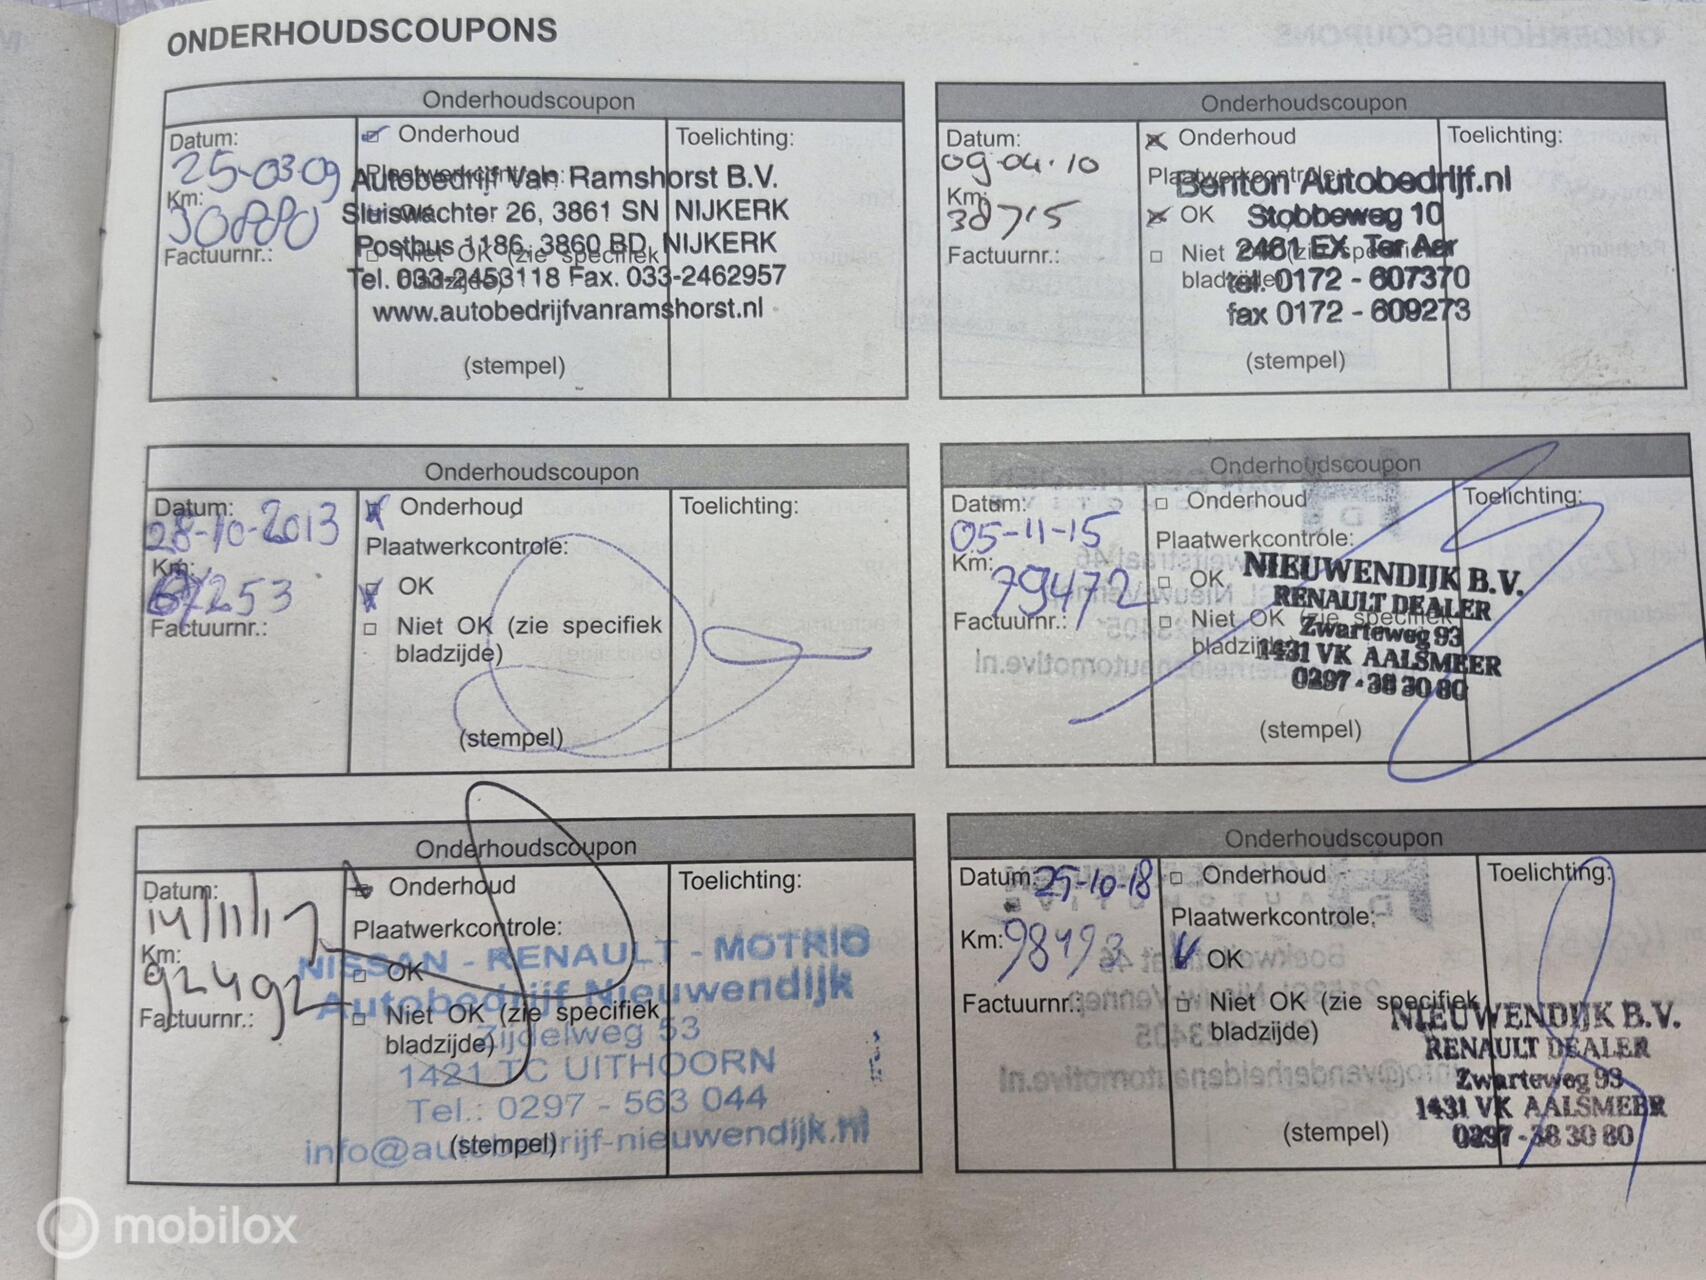 ONDERHOUDSCOUPONS
Onderhoudscoupon
Datum:
25-03-09
Km:
30880
Factuurnr.:
Onderhoud
Plaatwerkcontrole:
OK
Niet OK (zie specifiek
bladzijde)
Autobedrijf Van Ramshorst B.V.
Sluiswachter 26, 3861 SN NIJKERK
Postbus 1186, 3860 BD NIJKERK
Tel. 033-2453118 Fax. 033-2462957
www.autobedrijfvanramshorst.nl
(stempel)
Toelichting:
Onderhoudscoupon
Datum:
09-04-10
Km:
38715
Factuurnr.:
Onderhoud
Plaatwerkcontrole:
OK
Niet OK (zie specifiek
bladzijde)
Benton Autobedrijf.nl
Stobbeweg 10
2461 EX Ter Aar
tel. 0172 - 607370
fax 0172 - 609273
(stempel)
Toelichting:
Onderhoudscoupon
Datum:
28-10-2013
Km:
67253
Factuurnr.:
Onderhoud
Plaatwerkcontrole:
OK
Niet OK (zie specifiek
bladzijde)
(stempel)
Toelichting:
Onderhoudscoupon
Datum:
05-11-15
Km:
79472
Factuurnr.:
Onderhoud
Plaatwerkcontrole:
OK
Niet OK (zie specifiek
bladzijde)
NIEUWENDIJK B.V.
RENAULT DEALER
Zwarteweg 93
1431 VK AALSMEER
0297 - 38 30 80
(stempel)
Toelichting:
Onderhoudscoupon
Datum:
14/11/17
Km:
92492
Factuurnr.:
Onderhoud
Plaatwerkcontrole:
OK
Niet OK (zie specifiek
bladzijde)
NISSAN - RENAULT - MOTRIO
Autobedrijf Nieuwendijk
Zijdelweg 53
1421 TC UITHOORN
Tel.: 0297 - 563 044
info@autobedrijf-nieuwendijk.nl
(stempel)
Toelichting:
Onderhoudscoupon
Datum:
25-10-18
Km:
98493
Factuurnr.:
Onderhoud
Plaatwerkcontrole:
OK
Niet OK (zie specifiek
bladzijde)
NIEUWENDIJK B.V.
RENAULT DEALER
Zwarteweg 93
1431 VK AALSMEER
0297 - 38 30 80
(stempel)
Toelichting:
mobilox